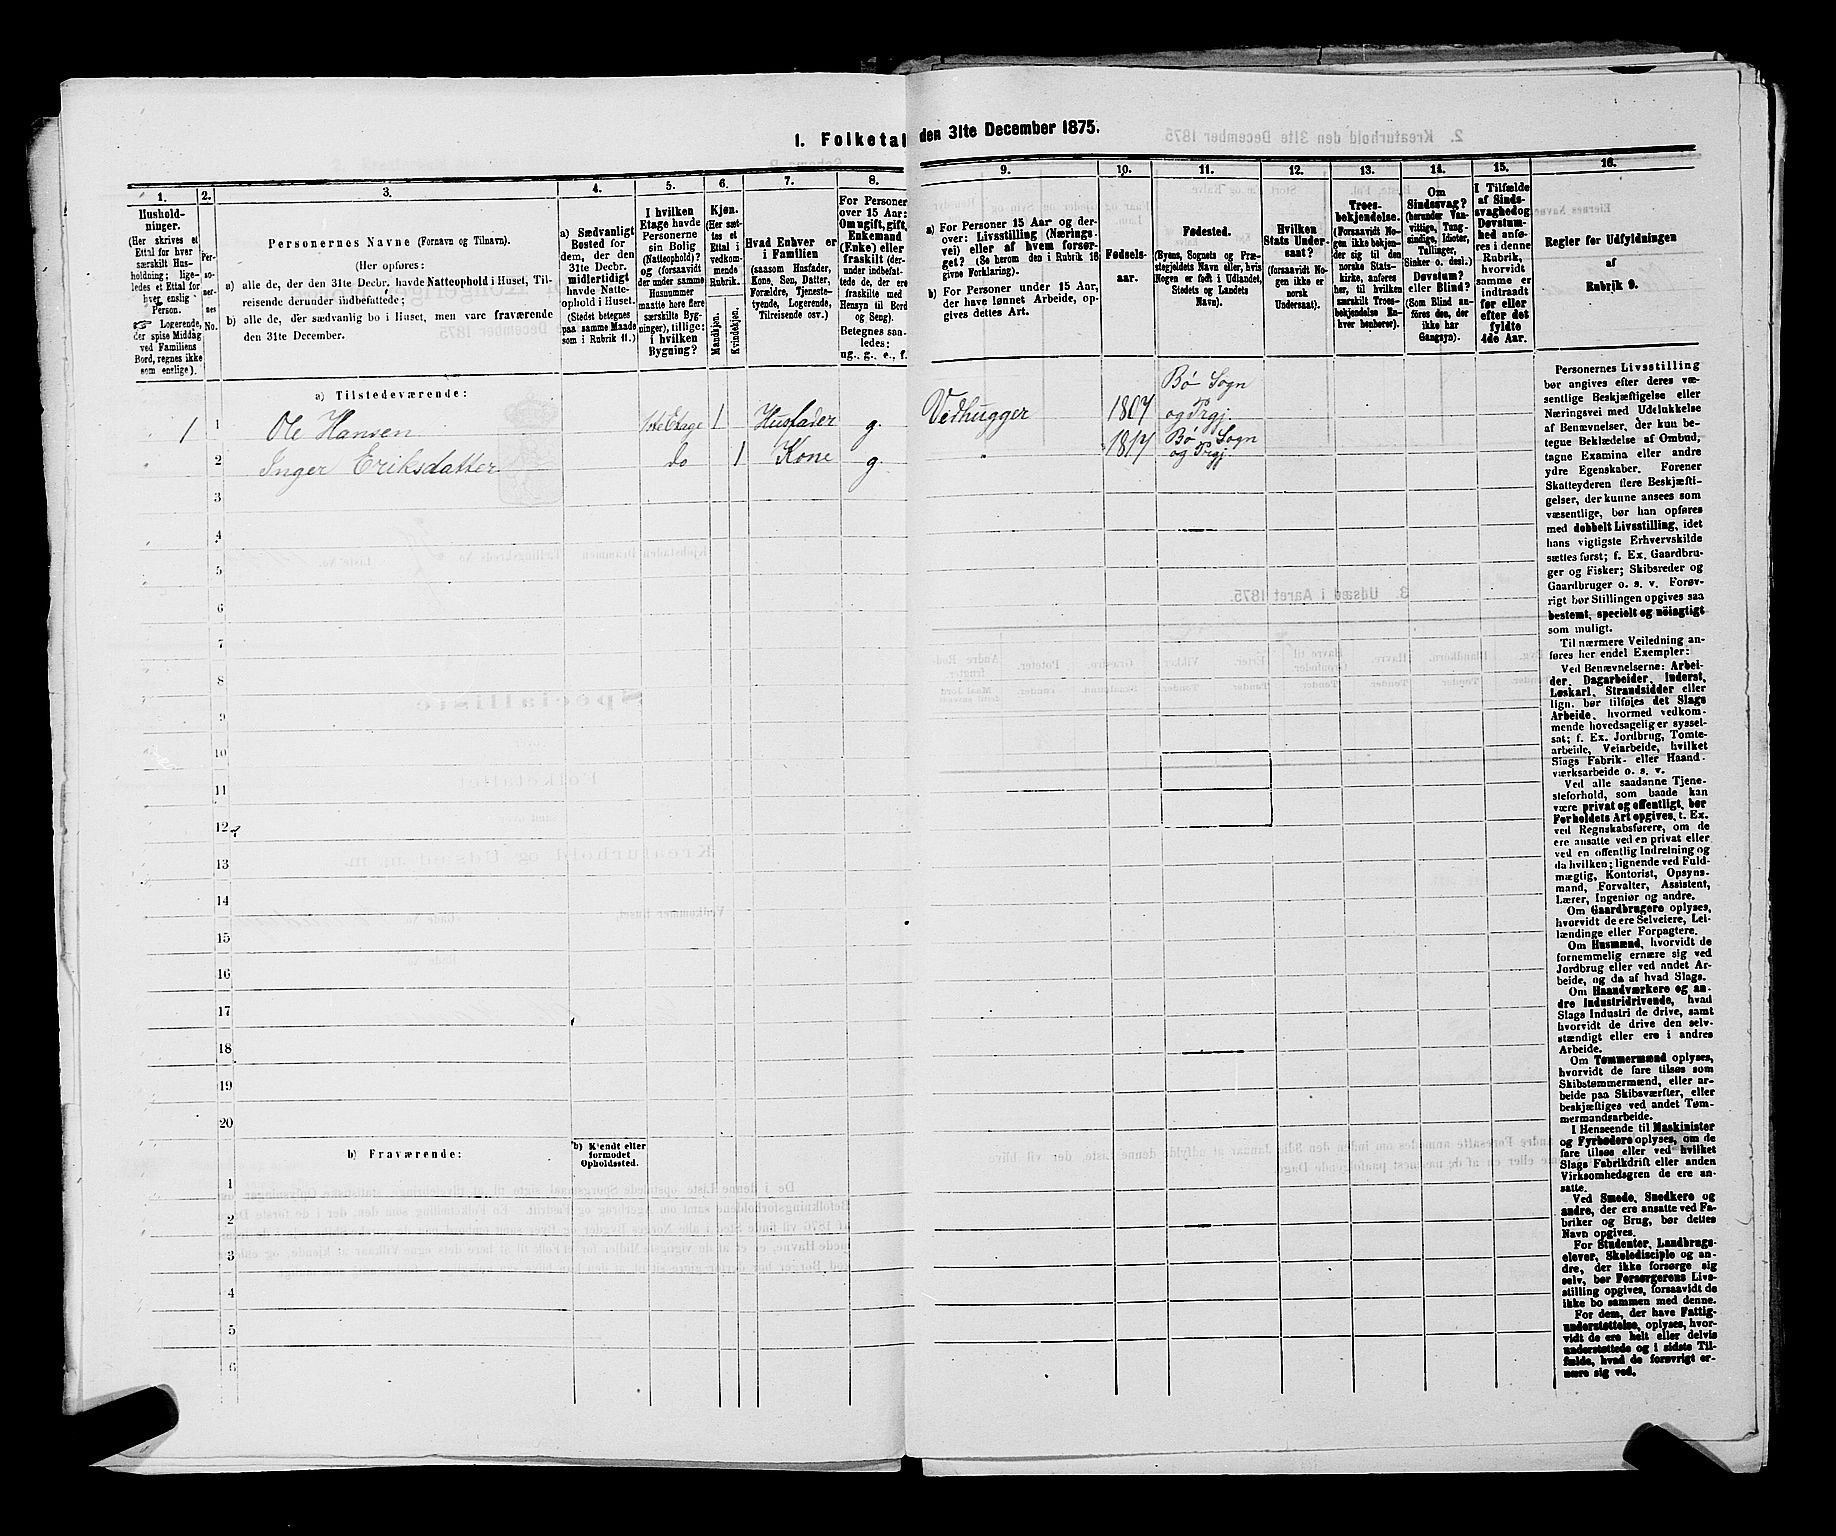 I. Folketal den 31te December 1875.
1.
2.
3.
4.
5.
6.
7.
8.
9.
10.
11.
12.
13.
14.
15.
16.
Hushold-
ninger.
(Her skrives et
Ettal for hver
særskilt Hus-
holdning; lige-
ledes et Ettal for
hver enslig
Person.
☞ Logerende,
der spise Middag
ved Familiens
Bord, regnes ikke
som enslige).
Per-
so-
ner-
nes
No.
Personernes Navne (Fornavn og Tilnavn).
(Her opføres:
a) alle de, der den 31te Decbr. havde Natteophold i Huset, Til-
reisende derunder indbefattede;
b) alle de, der sædvanlig bo i Huset, men vare fraværende
den 31te December.
a) Sædvanligt
Bosted for
dem, der den
31te Decbr.
midlertidigt
havde Natte-
ophold i Huset.
(Stedet betegnes
paa samme Maade
som i Rubrik 11.)
I hvilken
Etage havde
Personerne
sin Bolig
(Natteophold)?
og (forsaavidt
der under samme
Husnummer
maatte høre flere
særskilte Byg-
ninger), tillige:
i hvilken
Bygning?
Kjøn.
(Her sæt-
tes et
Ettal i
vedkom-
mende
Rubrik.
Mandkjøn.
Kvindekjøn.
Hvad Enhver er
i Familien
(saasom Husfader,
Kone, Søn, Datter,
Forældre, Tjeneste-
tyende, Logerende,
Tilreisende osv.)
For Personer
over 15 Aar:
Om ugift, gift,
Enkemand
(Enke) eller
fraskilt (der-
under indbefat-
tede de, der ere
fraskilte med
Hensyn til Bord
og Seng).
Betegnes saa-
ledes:
ug., g., e., f.
a) For Personer 15 Aar og der-
over: Livsstilling (Nærings-
vei) eller af hvem forsør-
get? (Se herom den i Rubrik 16
givne Forklaring).
b) For Personer under 15 Aar,
der have lønnet Arbeide, op-
gives dettes Art.
Fødsels-
aar.
Fødested.
(Byens, Sognets og Præ-
stegjeldets Navn eller, hvis
Nogen er født i Udlandet,
Stedets og Landets
Navn).
Hvilken
Stats Under-
saat?
(forsaavidt No-
gen ikke er
norsk
Undersaat).
Troes-
bekjendelse.
(Forsaavidt No-
gen ikke bekjen-
der sig til den
norske Stats-
kirke, anføres
her, til hvilken
særskilt Troes-
bekjendelse En-
hver henhører).
Om
Sindssvag?
(herunder Van-
vittige, Tung-
sindige, Idioter,
Tullinger,
Sinker o. desl.)
Døvstum?
eller Blind?
(Som Blind an-
føres den, der
ikke har
Gangsyn).
I Tilfælde
af Sinds-
svaghed og
Døvstum-
hed anfø-
res i denne
Rubrik,
hvorvidt
samme er
indtraadt
før eller
efter det
fyldte
4de Aar.
Regler for Udfyldningen
af
Rubrik 9.
a) Tilstedeværende:
1 1 Ole Hansen 1ste Etage 1 Husfader g. Vedhugger 1807 Bø Sogn
og Prgj.
2 Inger Eriksdatter do 1 Kone g. Bø Sogn
og Prgj.
3
4
5
6
7
8
9
10
11
12
13
14
15
16
17
18
19
20
b) Fraværende:
b) Kjendt eller
formodet
Opholdssted.
1
2
3
4
5
6
Personernes Livsstilling
bør angives efter deres væ-
sentlige Beskjæftigelse eller
Næringsvei med Udelukkelse
af Benævnelser, der kun be-
tegne Beklædelse af Ombud,
tagne Examina eller andre
ydre Egenskaber. Forener
Skatteyderen flere Beskjæfti-
gelser, der kunne ansees som
væsentlige, bør han opføres
med dobbelt Livsstilling, idet
hans vigtigste Erhvervskilde
sættes først; f. Ex. Gaardbru-
ger og Fisker; Skibsreder og
Gaardbruger o. s. v. Forøv-
rigt bør Stillingen opgives saa
bestemt, specielt og nöiagtigt
som muligt.
Til nærmere Veiledning an-
føres her endel Exempler:
Ved Benævnelserne: Arbei-
der, Dagarbeider, Inderst,
Løskarl, Strandsidder eller
lign. bør tilføies det Slags
Arbeide, hvormed vedkom-
mende hovedsagelig er syssel-
sat; f. Ex. Jordbrug, Tomte-
arbeide, Veiarbeide, hvilket
Slags Fabrik- eller Haand-
værksarbeide o. s. v.
Ved alle saadanne Tjene-
steforhold, som baade kan
være privat og offentligt, bør
Forholdets Art opgives, t. Ex.
ved Regnskabsførere, om de
ere ansatte ved en privat eller
ved en offentlig Indretning og
da hvilken; lignende ved Fuld-
mægtig, Kontorist, Opsyns-
mand, Forvalter, Assistent,
Lærer, Ingeniør og andre.
Om Gaardbrugere oplyses,
hvorvidt de ere Selveiere, Lei-
lændinge eller Forpagtere.
Om Husmænd, hvorvidt de
fornemmelig ernære sig ved
Jordbrug eller ved andet Ar-
beide, og da af hvad Slags.
Om Haandværkere og an-
dre Industridrivende, hvad
Slags Industri de drive, samt
hvorvidt de drive den selv-
stændigt eller ere i andres
Arbeide.
Om Tømmermænd oplyses,
hvorvidt de fare tilsøs som
Skibstømmermænd, eller ar-
beide paa Skibsværfter, eller
beskjæftiges ved andet Tøm-
mermandsarbeide.
I Henseende til Maskinister
og Fyrbødere oplyses, om de
fare tilsøs eller ved hvilket
Slags Fabrikdrift eller anden
Virksomhedsgren de ere an-
satte.
Ved Smede, Snedkere og
andre, der ere ansatte ved Fa-
briker og Brug, bør dettes
Navn opgives.
For Studenter, Landbrugs-
elever, Skoledisciple og an-
dre, der ikke forsørge sig
selv, bør Forsørgerens Livs-
stilling opgives, forsaavidt de
ikke bo sammen med denne.
For dem, der have Fattig-
understøttelse, oplyses, hvor-
vidt de ere helt eller delvis
understøttede og i sidste Til-
fælde, hvad de forøvrigt er-
nære sig ved.